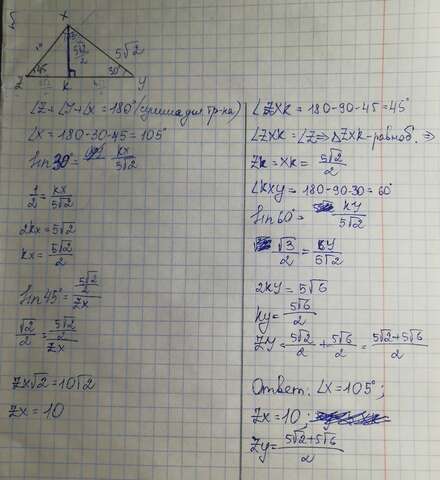 X
5√2
5√2/2
45
30°
Z
K
Y
∠Z+∠Y+∠X=180° (сумма угл тр-ка)
∠X=180-30-45=105°
sin30°= KX/5√2
1/2=KX/5√2
2KX=5√2
KX=5√2/2
sin45°= (5√2/2)/ZX
√2/2=(5√2/2)/ZX
ZX√2=10√2
ZX=10
∠ZXK=180-90-45=45°
∠ZXK=∠Z⇒△ZXK-равноб. ⇒
ZK=XK=5√2/2
∠KXY=180-90-30=60°
sin60°= KY/5√2
√3/2=KY/5√2
2KY=5√6
KY=5√6/2
ZY=5√2/2+5√6/2=5√2+5√6/2
Ответ: ∠X=105°;
ZX=10;
ZY=5√2+5√6/2